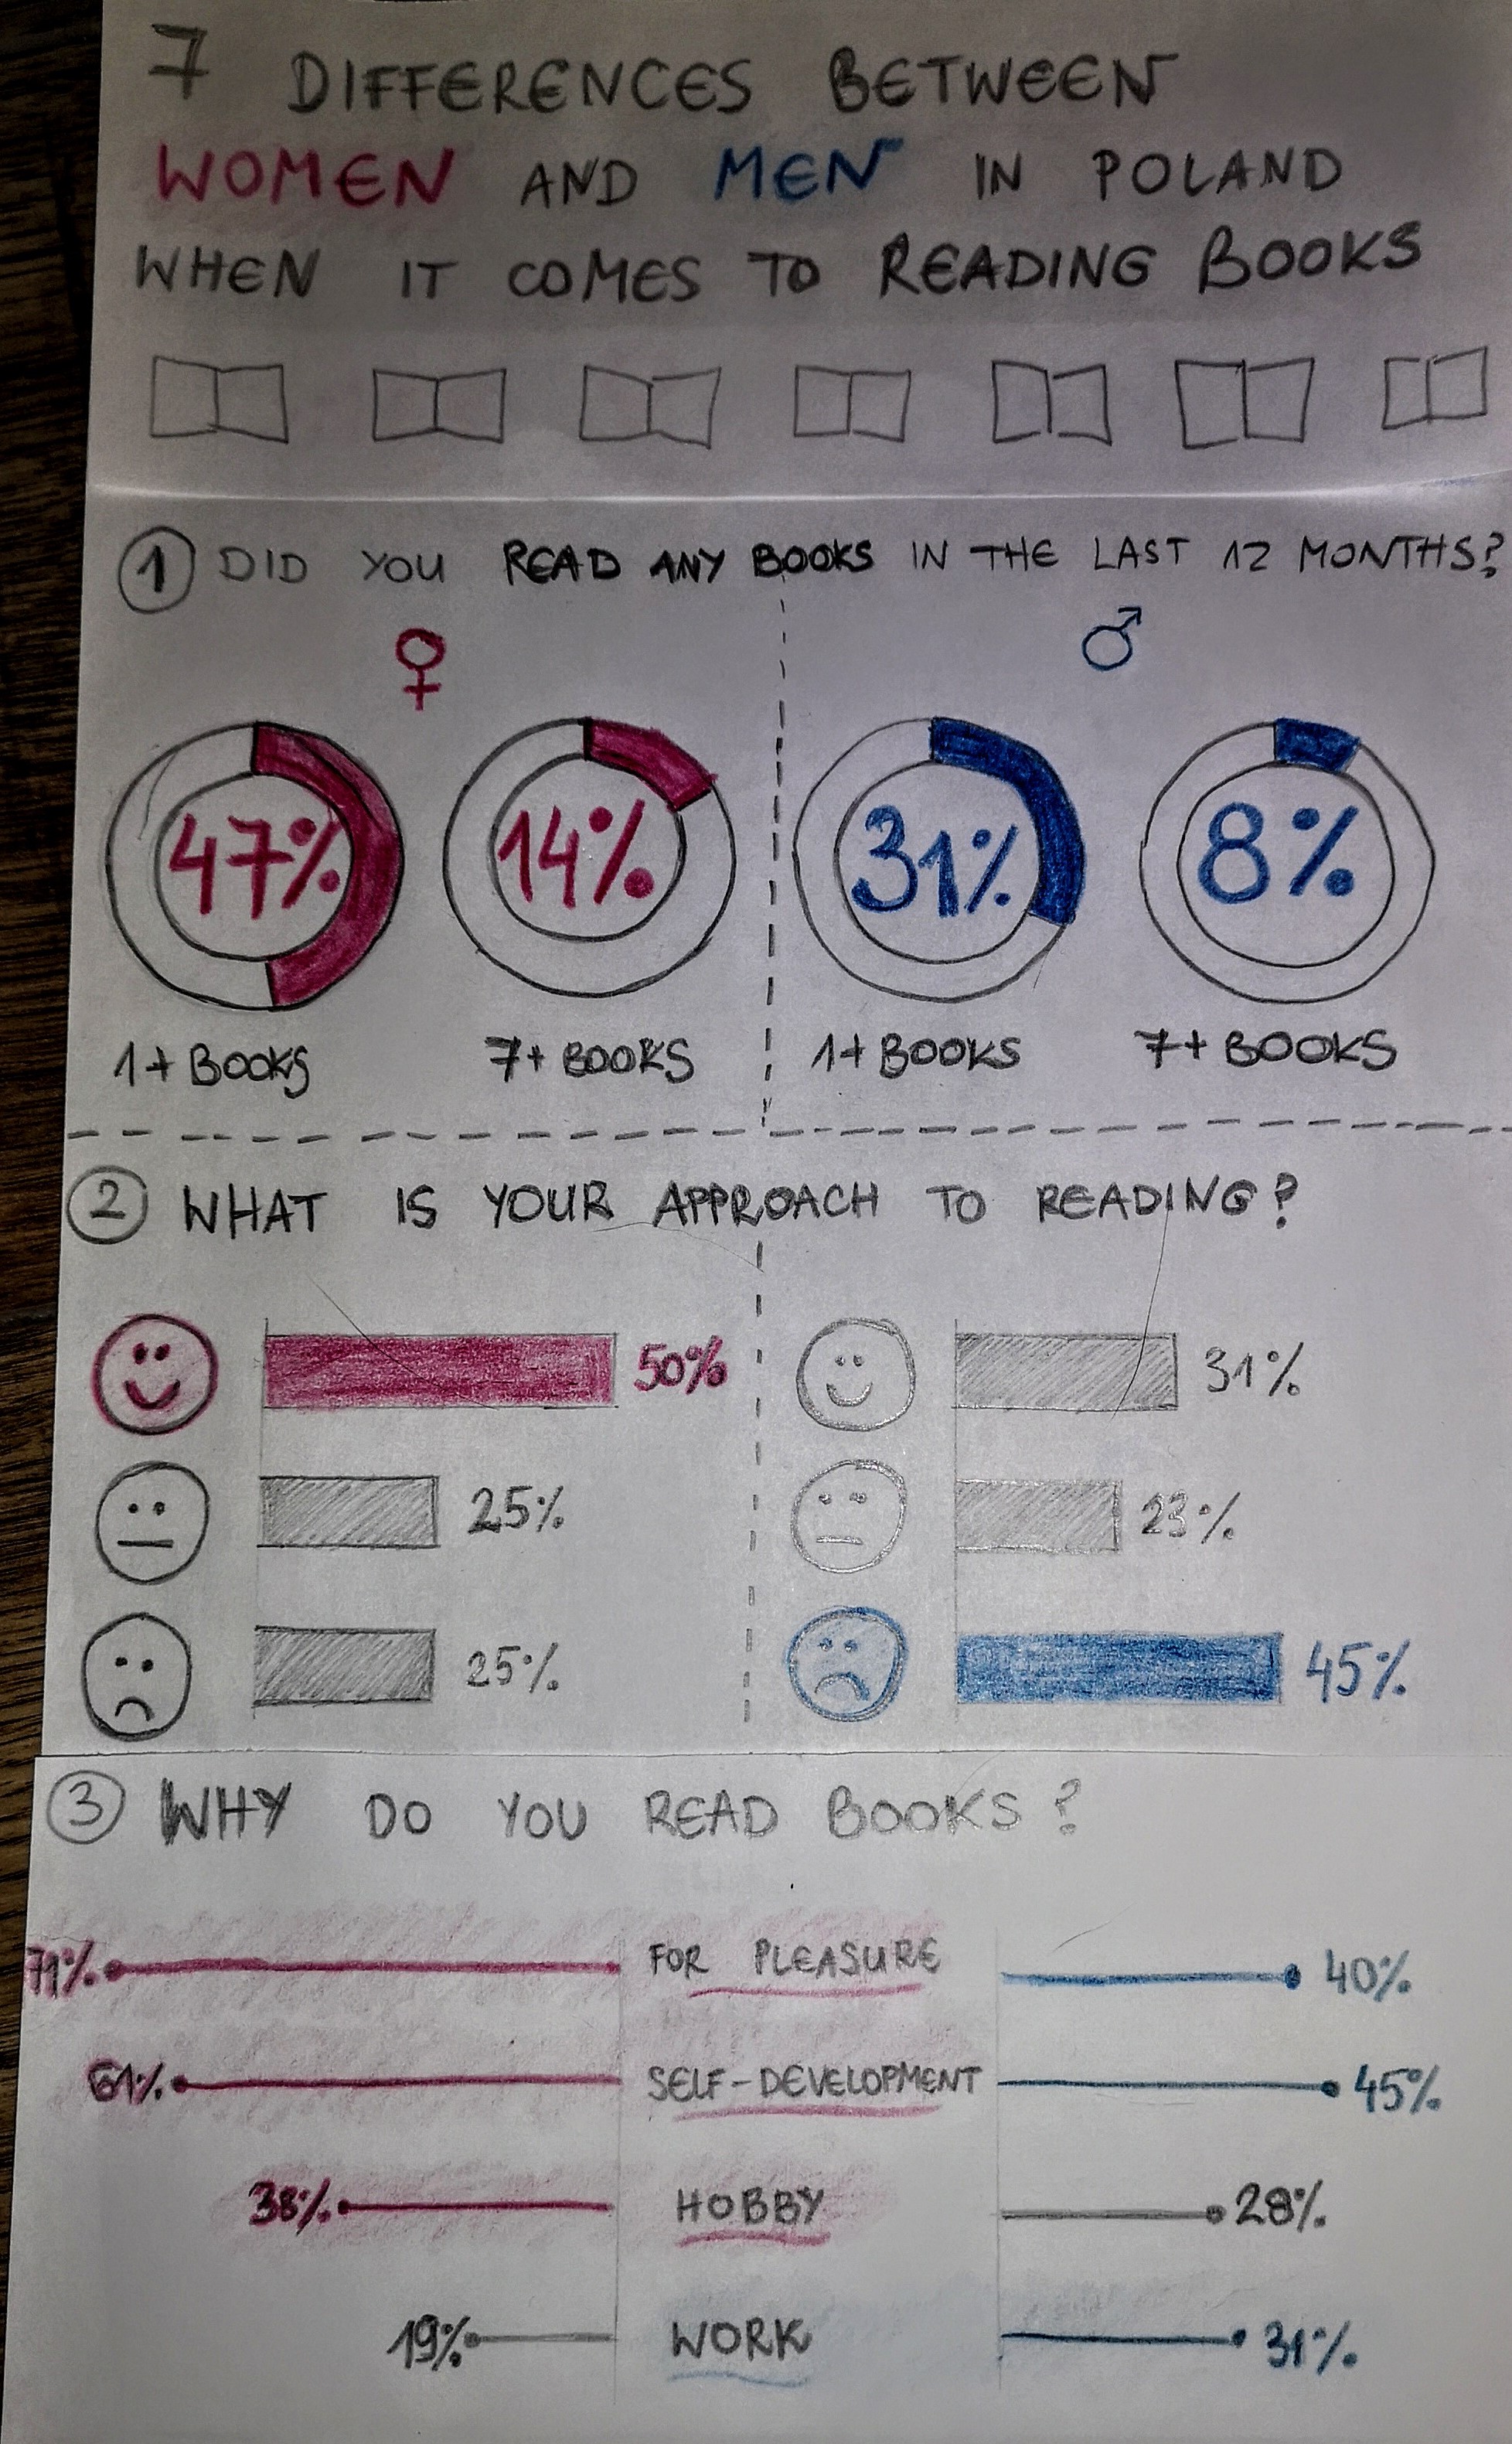 7 DIFFERENCES BETWEEN
WOMEN AND MEN IN POLAND
WHEN IT COMES TO READING BOOKS
1 DID YOU READ ANY BOOKS IN THE LAST 12 MONTHS?
♀ ♂
47% 14% 31% 8%
1+ BOOKS 7+ BOOKS 1+ BOOKS 7+ BOOKS
2 WHAT IS YOUR APPROACH TO READING?
50% 31%
25% 23%
25% 45%
3 WHY DO YOU READ BOOKS?
71% FOR PLEASURE 40%
61% SELF-DEVELOPMENT 45%
38% HOBBY 28%
19% WORK 31%